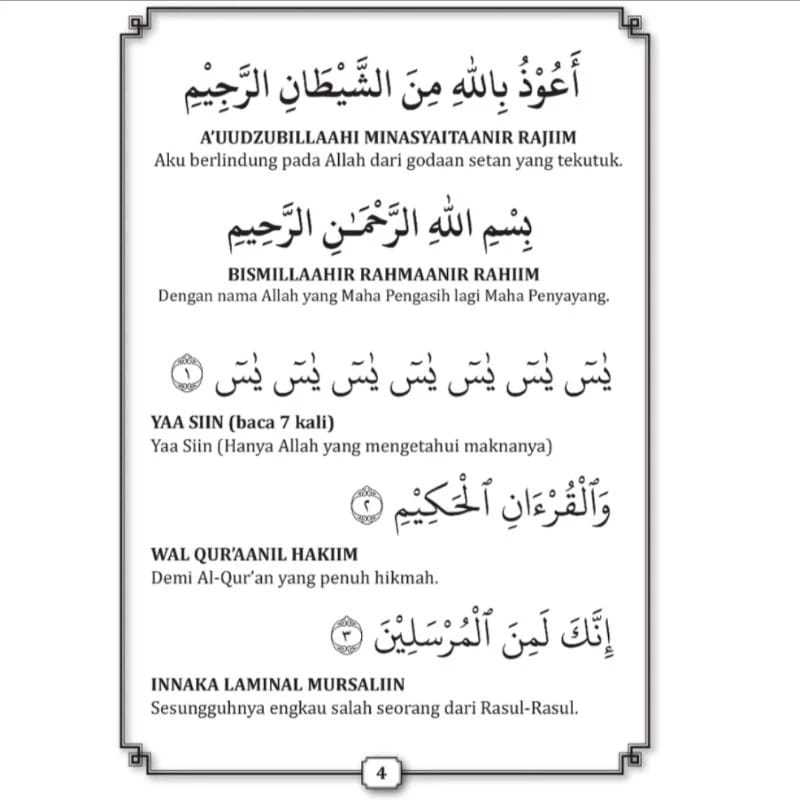 أَعُوْذُ بِاللهِ مِنَ الشَّيْطَانِ الرَّجِيْمِ
A'UUDZUBILLAAHI MINASYAITAANIR RAJIIM
Aku berlindung pada Allah dari godaan setan yang tekutuk.
بِسْمِ اللهِ الرَّحْمَـٰنِ الرَّحِيمِ
BISMILLAAHIR RAHMAANIR RAHIIM
Dengan nama Allah yang Maha Pengasih lagi Maha Penyayang.
يٰسٓ يٰسٓ يٰسٓ يٰسٓ يٰسٓ يٰسٓ يٰسٓ ١
YAA SIIN (baca 7 kali)
Yaa Siin (Hanya Allah yang mengetahui maknanya)
وَٱلْقُرْءَانِ ٱلْحَكِيْمِ ٢
WAL QUR'AANIL HAKIIM
Demi Al-Qur'an yang penuh hikmah.
إِنَّكَ لَمِنَ ٱلْمُرْسَلِيْنَ ٣
INNAKA LAMINAL MURSALIIN
Sesungguhnya engkau salah seorang dari Rasul-Rasul.
4